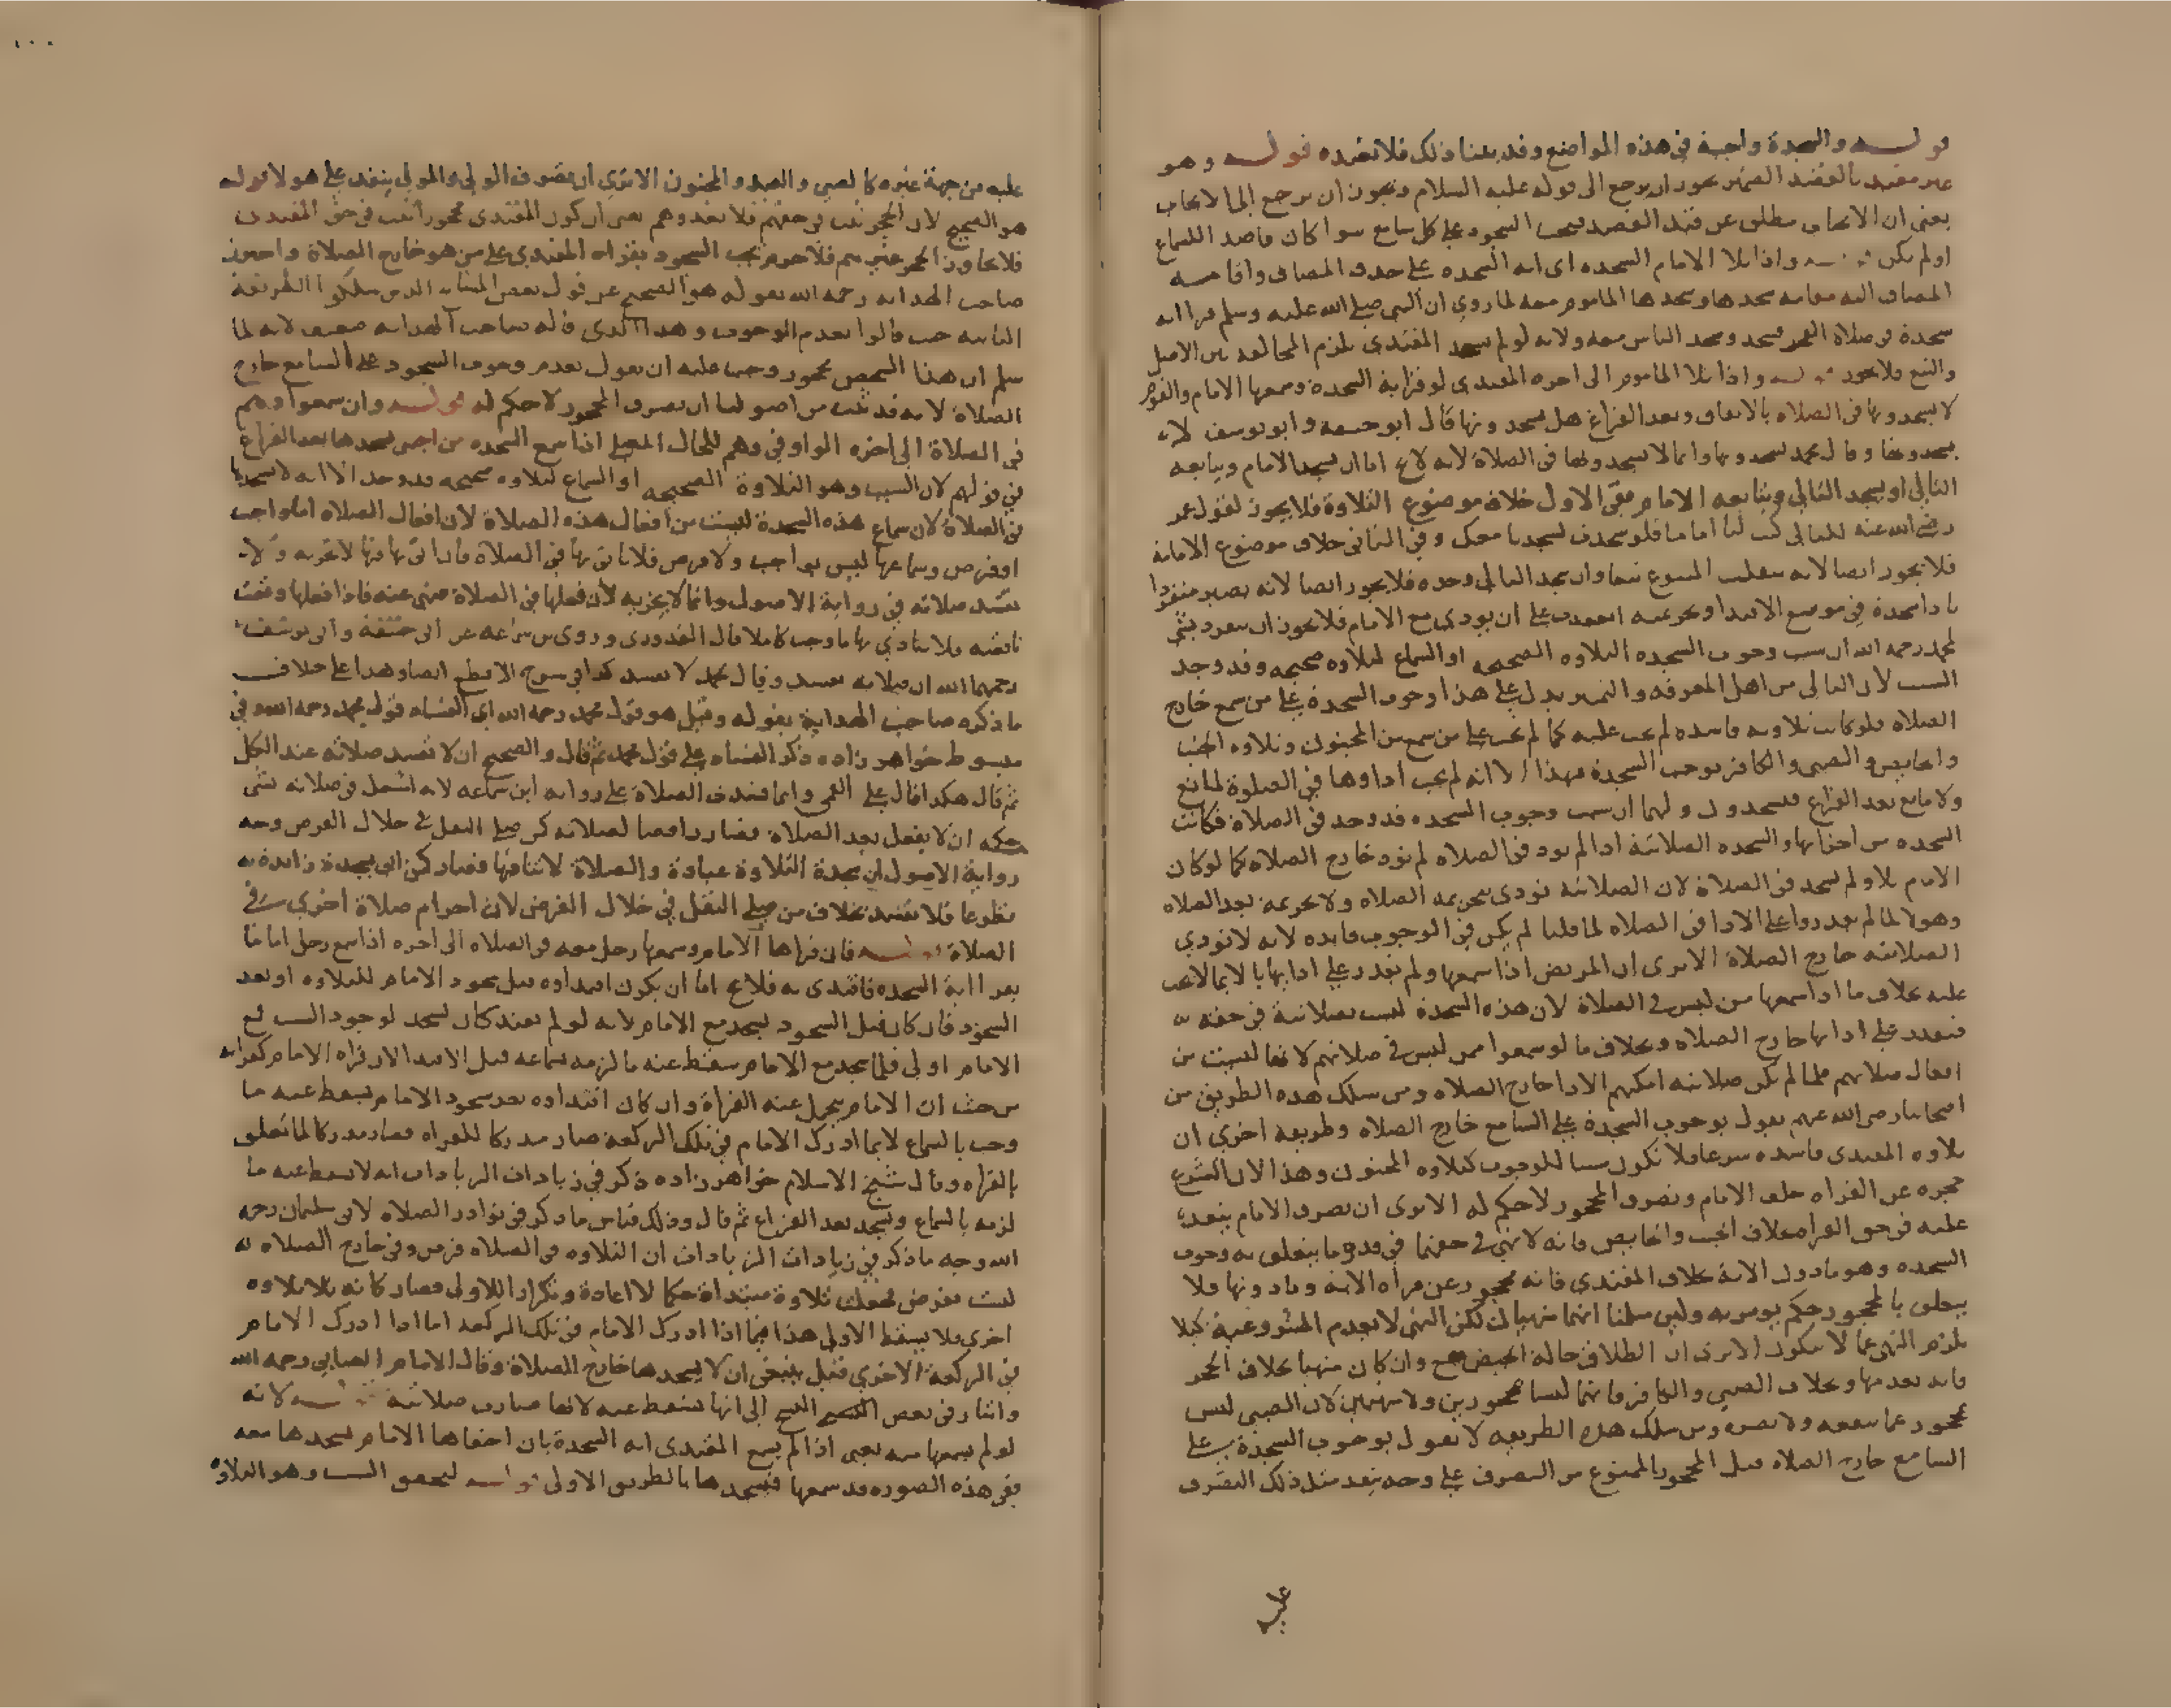 قوله والسجدة واجبة في هذه المواضع وقد بينا ذلك فلا نعيده قوله وهو
غير مقيد بالقصد الضمير يجوز ان يرجع الى قوله عليه السلام ويجوز ان يرجع الى الايجاب
يعني ان الايجاب مطلق عن قيد القصد فيجب السجود على كل سامع سوا كان قاصد اللسماع
اولم يكن قوله واذا تلا الامام السجده اى ايه السجده على حذف المضاف واقامة
المضاف اليه مقامه سجدها وسجدها الماموم معه لما روي ان النبي صلى الله عليه وسلم قرا ايه
سجدة في صلاة الفجر فسجد وسجد الناس معه ولانه لو لم يسجد المقتدى يلزم المخالفه بين الاصل
والتبع فلا يجوز قوله واذا تلا الماموم الى اخره المقتدى لو قرا اية السجدة وسمعها الامام والقوم
لا يسجدونها في الصلاه بالاتفاق وبعد الفراغ هل يسجدونها قال ابو حنيفه وابو يوسف لا
يسجدونها وقال محمد يسجدونها وانما لا يسجدونها في الصلاة لانه لا يخ اما ان يسجد الامام ويتابعه
التالي او يسجد التالي ويتابعه الامام ففي الاول خلاف موضوع التلاوة فلا يجوز لقول عمر
رضي الله عنه للتالي كنت لنا اماما فلو سجدت لسجدنا معك وفي الثاني خلاف موضوع الامامة
فلا يجوز ايضا لانه ينقلب المتبوع تبعا وان سجد التالي وحده فلا يجوز ايضا لانه يصير منفردا
باداسجدة في موضع الاقتدا وتحريمته انعقدت على ان يودى مع الامام فلا يجوز ان ينفرد بشي
لمحمد رحمه الله ان سبب وجوب السجده التلاوه الصحيحه او السماع لتلاوه صحيحه وقد وجد
السبب لان التالي من اهل المعرفه والتميز يدل على هذا وجوب السجدة على من سمع خارج
الصلاه فلو كانت تلاوته فاسده لم تجب عليه كما لم تجب على من سمع من المجنون وتلاوه الجنب
والحايض والصبى والكافر توجب السجدة فهذا الا انه لم يجب اداوها في الصلوة لمانع
ولا مانع بعد الفراغ فيسجدون ولهما ان سبب وجوب السجده قد وجد في الصلاة فكانت
السجده من اجزائها والسجده الصلاتية اذا لم تود في الصلاه لم تود خارج الصلاه كما لو كان
الامام تلا ولم يسجد في الصلاة لان الصلاتيه تودى بتحريمه الصلاه ولا تحريمه بعد الصلاه
وهولا لما لم يقدروا على الادا في الصلاه لما قلنا لم يكن في الوجوب فايده لانه لا تودي
الصلاتيه خارج الصلاة الا ترى ان المريض اذا سمعها ولم يقدر على ادايها بالايما لا تجب
عليه بخلاف ما اذا سمعها من ليس في الصلاة لان هذه السجدة ليست بصلاتية في حقه
فيقدر على ادايها خارج الصلاه وبخلاف ما لو سمعوا ممن ليس في صلاتهم لانها ليست من
افعال صلاتهم فلما لم تكن صلاتيه امكنهم الادا خارج الصلاه ومن سلك هذه الطريق من
اصحابنا رضي الله عنهم يقول بوجوب السجدة على السامع خارج الصلاه وطريقه اخري ان
تلاوه المقتدى فاسده شرعا فلا تكون سببا للوجوب كتلاوه المجنون وهذا لان الشرع
حجره عن القراه خلف الامام وتصرف المحجور لا حكم له الا ترى ان تصرف الامام ينفذ
عليه في حق القراه بخلاف الجنب والحايض فانه لا نهي في حقهما في قدر ما يتعلق به وجوب
السجده وهو مادون الاية بخلاف المقتدى فانه محجور عن قراه الايه وما دونها فلا
يتعلق بالمحجور حكم يومر به ولين سلمنا انهما منهيان لكن النهى لا يعدم المشروعية كيلا
يلزم النهى عما لا يتكون الا ترى ان الطلاق حالة الحيض صح وان كان منهيا بخلاف الحجر
فانه يعدمها وبخلاف الصبي والكافر فانهما ليسا محجورين ولا منهيين لان الصبي ليس
بمحجور عما ينفعه ولا يضره ومن سلك هذه الطريقه لا يقول بوجوب السجدة على
السامع خارج الصلاه قيل المحجور الممنوع من التصرف على وجه ينفذ مثل ذلك التصرف
عليه
عليه من جهة غيره كالصبي والعبد والمجنون الا ترى ان تصرف الولي والمولى ينفذ على هولا قوله
هو الصحيح لان الحجر ثبت في حقهم فلا يعدوهم يعني ان كون المقتدى محجورا ثبت في حق المقتدين
فلا يتجاوز الحجر غيرهم فلا جرم تجب السجود بقراه المقتدى على من هو خارج الصلاة واحترز
صاحب الهدايه رحمه الله بقوله هو الصحيح عن قول بعض المشايخ الذين سلكوا الطريقة
الثانيه حيث قالوا بعدم الوجوب وهذا الذى قاله صاحب الهدايه ضعيف لانه لما
سلم ان هذا الشخص محجور وجب عليه ان يقول بعدم وجوب السجود على السامع خارج
الصلاة لانه قد ثبت من اصولنا ان تصرف المحجور لا حكم له قوله وان سمعوا وهم
في الصلاة الى اخره الواو في وهم للحال المصلى اذا سمع السجده من اجنبي يسجدها بعد الفراغ
في قولهم لان السبب وهو التلاوة الصحيحه او السماع لتلاوه صحيحه قد وجد الا انه لا يسجدها
في الصلاة لان سماع هذه السجدة ليست من افعال هذه الصلاة لان افعال الصلاه اما واجب
او فرض وسماعها ليس بواجب ولا فرض فلا ياتى بها في الصلاة فان اتى بها فيها لا تجزيه ولا
تفسد صلاته في رواية الاصول وانما لا يجزيه لان فعلها في الصلاة منهي عنه فاذا فعلها وقعت
ناقصه فلا يتادي بها ما وجب كاملا قال القدورى وروى بن سماعه عن ابى حنيفة وابى يوسف
رحمهما الله ان صلاته تفسد وقال محمد لا تفسد كذا في شرح الاقطع ايضا وهذا على خلاف
ما ذكره صاحب الهداية بقوله وقيل هو قول محمد رحمه الله اي الفساد قول محمد رحمه الله وفي
مبسوط خواهر زاده ذكر الفساد على قول محمد ثم قال والصحيح ان لا تفسد صلاته عند الكل
ثم قال هكذا قال على القمي وانما تفسد الصلاة على روايه ابن سماعه لانه اشتغل في صلاته بشي
حكمه ان لا يفعل بعد الصلاة فصار رافضا لصلاته كمن صلى النفل في خلال الفرض وجه
رواية الاصول ان سجدة التلاوة عبادة والصلاة لا تنافيها فصار كمن اتى بسجدة زايدة
تطوعا فلا تفسد بخلاف من صلى النفل في خلال الفرض لان احرام صلاة اخرى
الصلاة قوله فان قراها الامام وسمعها رجل معه في الصلاه الى اخره اذا سمع رجل اماما
يقرا اية السجده فاقتدى به فلا يخ اما ان يكون اقتداوه قبل سجود الامام للتلاوه او بعد
السجود فان كان قبل السجود يسجد مع الامام لانه لو لم يقتد كان يسجد لوجود السبب فمع
الامام اولى فلما سجد مع الامام سقط عنه ما لزمه بسماعه قبل الاقتدا لان قراه الامام كقرائه
من حيث ان الامام يتحمل عنه القراة وان كان اقتداوه بعد سجود الامام يسقط عنه ما
وجب بالسماع لانه لما ادرك الامام في تلك الركعه صار مدركا للقراه فصار مدركا لما تعلق
بالقراه وقال شيخ الاسلام خواهر زاده ذكر في زيادات الزيادات انه لا يسقط عنه ما
لزمه بالسماع ويسجد بعد الفراغ ثم قال وذلك قياس ما ذكر في نوادر الصلاه لابى سليمان رحمه
الله وجه ما ذكر في زيادات الزيادات ان التلاوه في الصلاه فرض وفي خارج الصلاه
ليست بفرض فجعلت تلاوة مبتداة حكما لا اعادة وتكرارا للاولى فصار كانه تلا تلاوه
اخرى فلا يسقط الاولى هذا فيما اذا ادرك الامام في تلك الركعه اما اذا ادرك الامام
في الركعة الاخرى قيل ينبغي ان لا يسجدها خارج الصلاة وقال الامام العتابي رحمه الله
واشار في بعض النسخ الى انها تسقط عنه لانها صارت صلاتية قوله لانه
لو لم يسمعها معه يعنى اذا لم يسمع المقتدى ايه السجدة بان اخفاها الامام يسجدها معه
ففي هذه الصوره قد سمعها فيسجدها بالطريق الاولى قوله لتحقق السبب وهو التلاوه